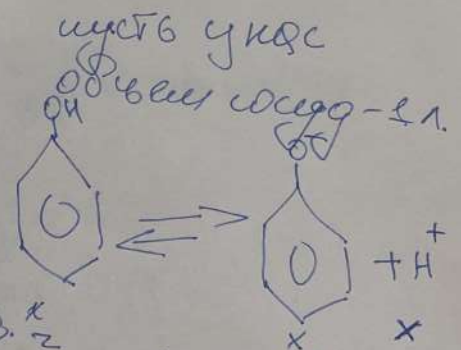 пусть у нас
объем сосуда - 1 л.
OH
O⁻
+ H⁺
x
x